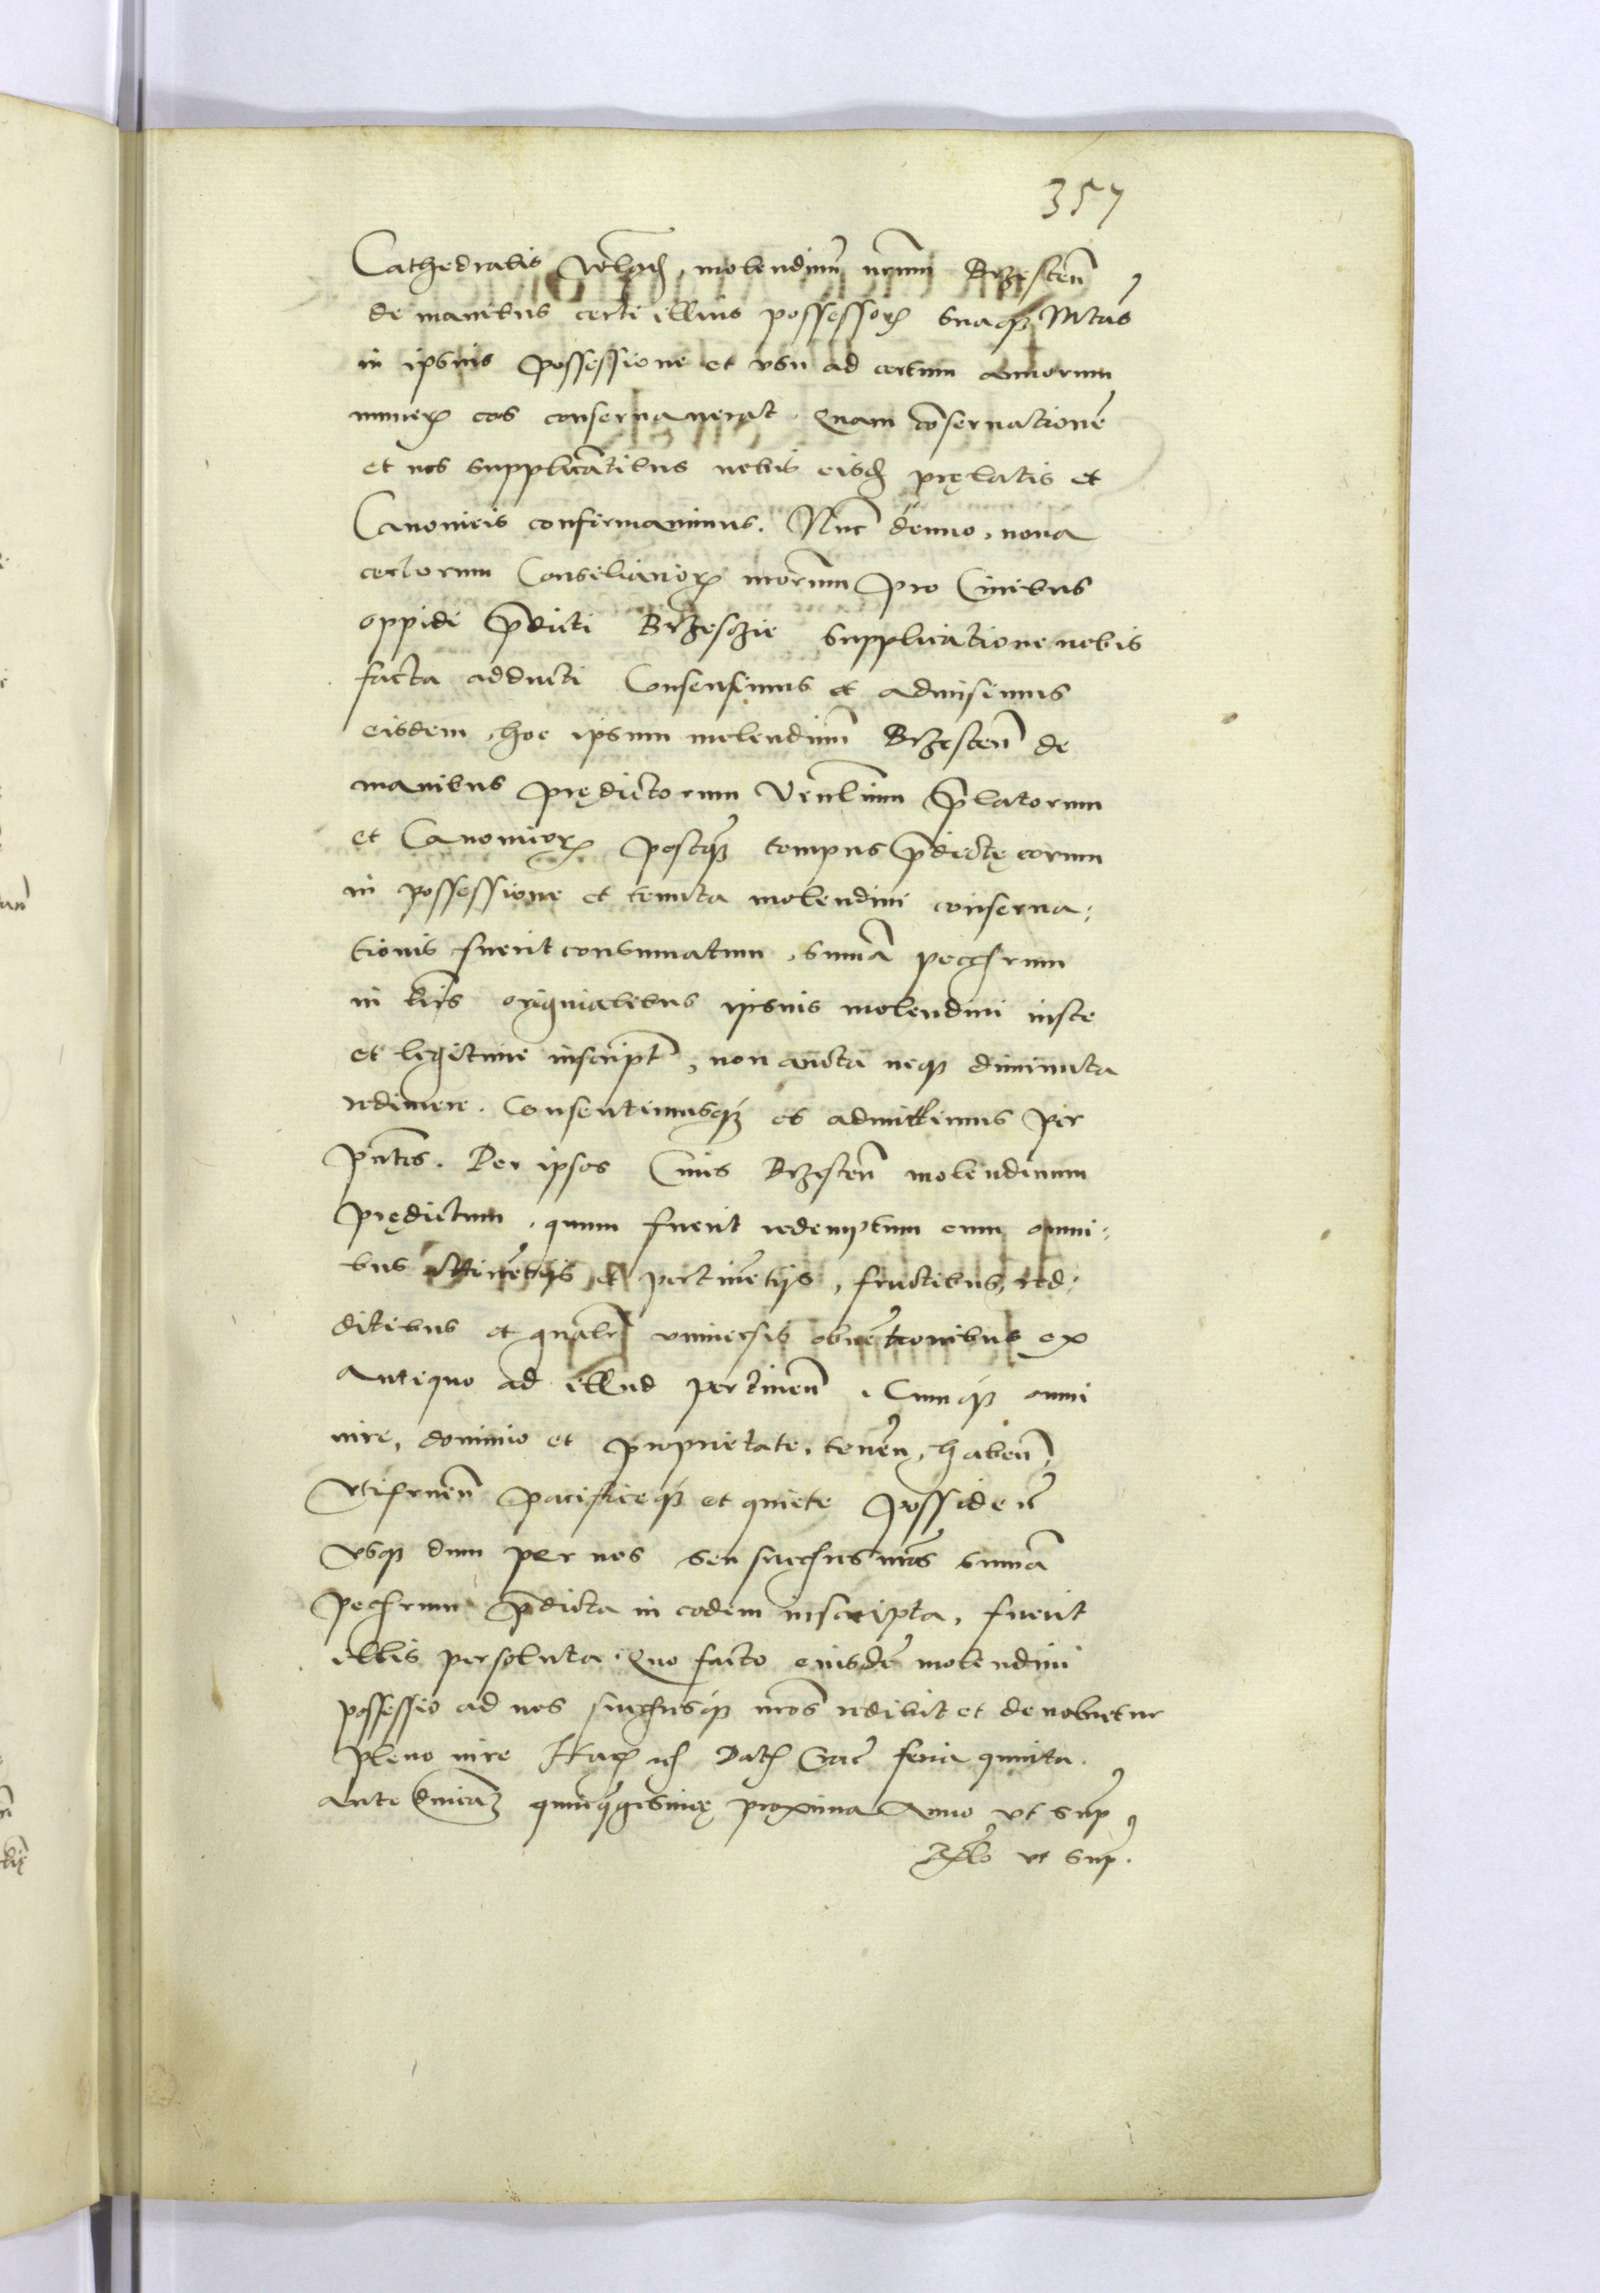 357
Cathedralis Wladˢ, molendinū nr̄um Brzesteñ
de manibus certi illius possessorꝭ suaqꝫ Mtas
in ipsius possessione et vsu ad certum annorum
numerꝭ eos conservaverat. Quam cōservationē
et nos supplicātibus nobis eisdꝭ prelatis et
Canonicis confirmavimus. Nūc denuo, nova
certorum Consiliariorꝭ nr̄orum pro Civibus
oppidi p̄dicti Brzesczie supplicatione nobis
facta adducti Consensimus et admisimus
eisdem, hoc ipsum molendinū Brzesteñ de
manibus prędictorum Venlium p̄latorum
et Canonicorꝭ postqꝫ tempus p̄dictę eorum
in possessione et tenuta molendini conserva:
tionis fuerit consumatum, sumā pecrum
in lr̄is originalibus ipsius molendini iuste
et legitime inscript̄, non aucta neqꝫ diminuta
redimere. Consentimusqꝫ et admittimus per
pn̄tes. Per ipsos Cives Brzesteñ molendinum
prędictum, quum fuerit redemptum cum omni:
bus attinētijs et pertinētijs, fructibus, red:
ditibus et gn̄alr̄ universis obvētionibus ex
antiquo ad illud pertineñ. Cumqꝫ omni
iure, dominio et proprietate, teneñ, habeñ,
Vtifrueñ pacificeqꝫ et quiete possideñ
vsqꝫ dum per nos seu succrus nr̄os sumā
pecrum p̄dicta in eodem inscripta, fuerit
illis persoluta. Quo facto eiusdē molendini
possessio ad nos succrusqꝫ nr̄os redibit et devolvetur
pleno iure Harꝭ Datꝭ Crac̄ feria quinta
ante dn̄icā quinqgesimę proxima Anno vt sup̄
Rͭlo vt sup̄.